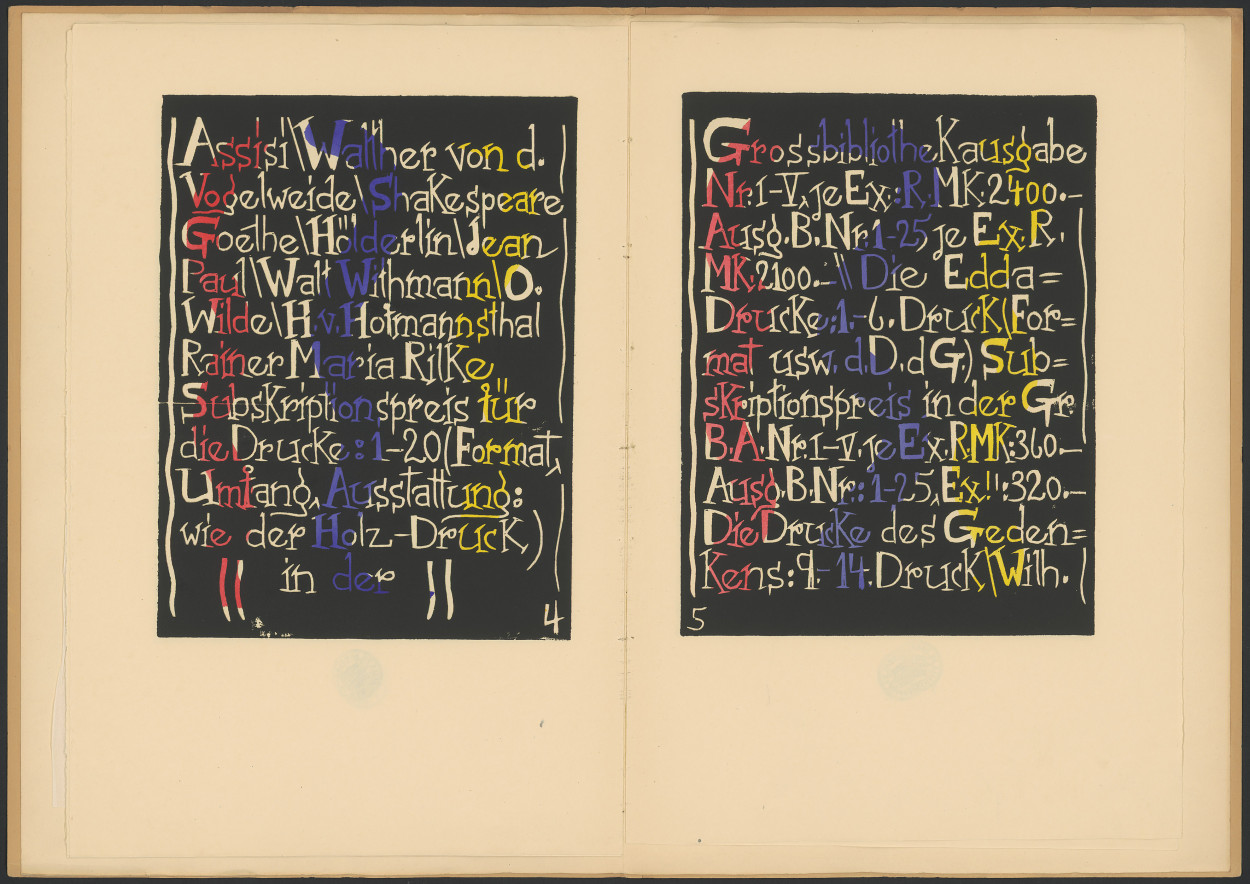 Assisi\Walther von d.
Vogelweide\Shakespeare
Goethe\Hölderlin\Jean
Paul\Walt Withmann\O.
Wilde\H.v.Hofmannsthal
Rainer Maria Rilke
Subskriptionspreis für
die Drucke:1-20(Format,
Umfang, Ausstattung:
wie der Holz-Druck)
in der
4
Grossbibliothekausgabe
Nr.1-V, je Ex.:R.MK.2400.-
Ausg.B.Nr.1-25 je Ex.R.
MK.2100.-\\Die Edda=
Drucke:1.-6.Druck(For=
mat usw.d.D.dG.) Sub=
skriptionspreis in der Gr
B.A.Nr.1-V.je Ex.R.MK:360.-
Ausg.B.Nr.:1-25,Ex!!:320.-
Die Drucke des Geden=
kens:9-14.Druck\Wilh.
5